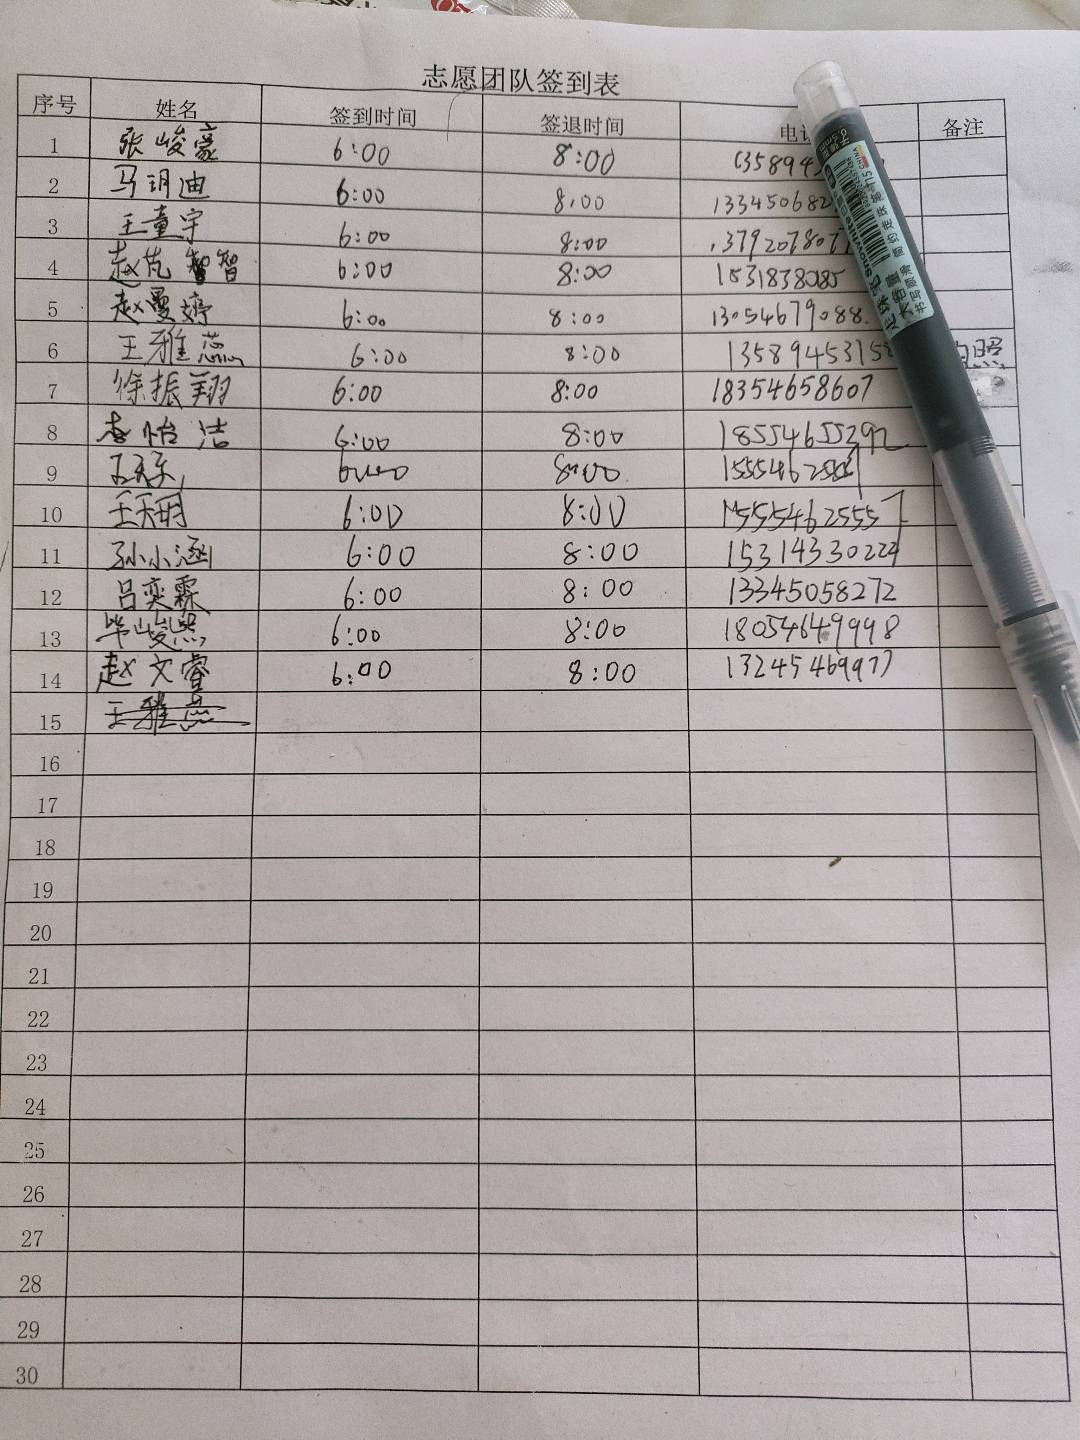 志愿团队签到表
序号 姓名 签到时间 签退时间 备注
1 张峻豪 6:00 8:00
2 马玥迪 6:00 8:00
3 王童宇 6:00 8:00
4 赵芃智 6:00 8:00
5 赵曼婷 6:00 8:00 13054679088
6 王雅蕊 6:00 8:00 照
7 徐振翔 6:00 8:00 18354658607
8 李怡洁 6:00 8:00 18554655292
9 6:00 8:00
10 6:00 8:00
11 孙小涵 6:00 8:00 15314330224
12 吕奕霖 6:00 8:00 13345058272
13 毕峻熙 6:00 8:00 18054649998
14 赵文睿 6:00 8:00 13245469977
15 王雅蕊
16
17
18
19
20
21
22
23
24
25
26
27
28
29
30
0.5mm
CHINA
Snowhite
走珠笔
大容量
书写顺滑